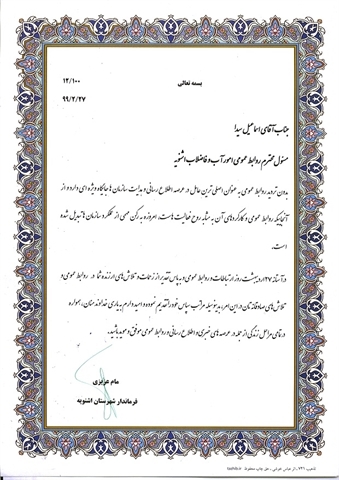 بسمه تعالی
۱۲/۱۰۰
۹۹/۲/۲۷
جناب آقای اسماعیل سیدا
مسئول محترم روابط عمومی امور آب و فاضلاب اشنویه
بدون تردید روابط عمومی به عنوان اصلی ترین عامل در عرصه اطلاع رسانی و هدایت سازمان ها جایگاه ویژه ای دارد و از
آنجاییکه روابط عمومی و کارکردهای آن به مثابه روح فعالیت هاست، امروزه به رکن مهمی از عملکرد سازمان ها تبدیل شده
است.
در آستانه ۲۷ اردیبهشت روز ارتباطات و روابط عمومی و به پاس تقدیر از زحمات و تلاش های ارزنده شما در روابط عمومی و
تلاش های صادقانه تان در این امر، بدینوسیله مراتب سپاس خود را تقدیم نموده و امیدوارم به یاری خداوند منان، همواره
در تمامی مراحل زندگی از جمله در عرصه های خبری و اطلاع رسانی و روابط عمومی موفق و موید باشید.
مام عزیزی
فرماندار شهرستان اشنویه